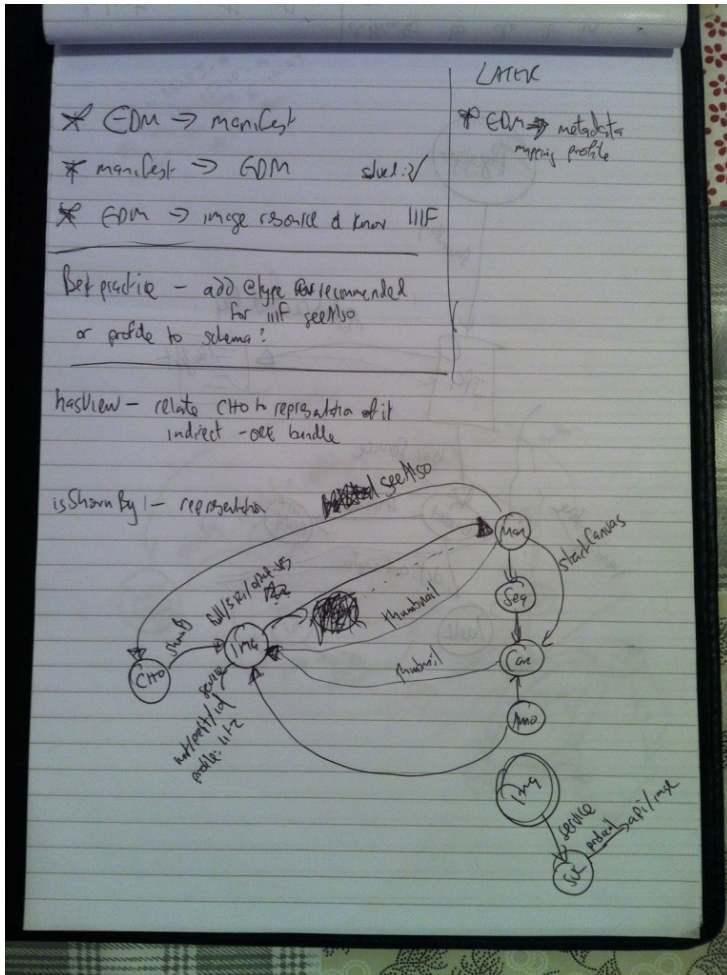 * EDM → manifest
* manifest → EDM solved :) ✓
* EDM → image resource & know IIIF
LATER
* EDM → metadata
mapping profile
Best practice – add @type recommended
for IIIF seeAlso
or profile to schema?
hasView – relate CHO to representation of it
indirect – ORE bundle
isShownBy – representation
seeAlso
Man
startCanvas
Seq
thumbnail
Can
thumbnail
Img
shownBy
CHO
service
profile: iiif-2
Anno
Img
service
Svc
protocol api/image